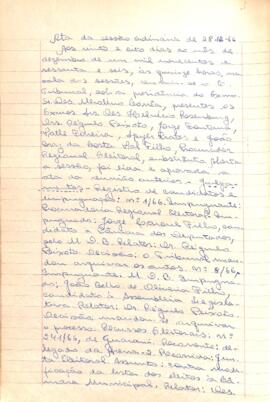 Ata da sessão ordinária de 28-12-66
Aos vinte e oito dias do mês de
dezembro de um mil novecentos e
sessenta e seis, às quinze horas, na
sala das sessões, reuniu-se o E.
Tribunal, sob a presidência do Exmo.
Sr. Des. Corrêa, presentes os
Exmos. Srs. Des. Rosenburg,
Drs. Régulo Peixoto, Jorge Fontana,
Pereira, Prates e João
da Costa Val Filho, Procurador
Regional Eleitoral, substituto. Aberta
a sessão, foi lida e aprovada a
ata da reunião anterior. - Julga-
mentos - Registro de candidatos e
impugnação: nº 1/66. Impugnante:
Procuradoria Regional Eleitoral; Im-
pugnado: Jorge Filho, can-
didato à Câmara dos Deputados,
pelo M. D. B. Relator: Dr. Régulo
Peixoto. Decisão: O Tribunal man-
dou arquivar os autos. nº 8/66,
Impugnante: M. D. B. Impugna-
do: João Bello de Oliveira Filho,
candidato à Assembleia Legis-
lativa. Relator: Dr. Régulo Peixoto.
Decisão: mandou-se arquivar
o processo. Recursos Eleitorais: nº
241/66, de Guarani. Recorrente: de-
legado da Arena-2. Recorrida: Jun-
ta Eleitoral. Assunto: contra modi-
ficação da lista dos eleitos à Câ-
mara Municipal. Relator: Des.